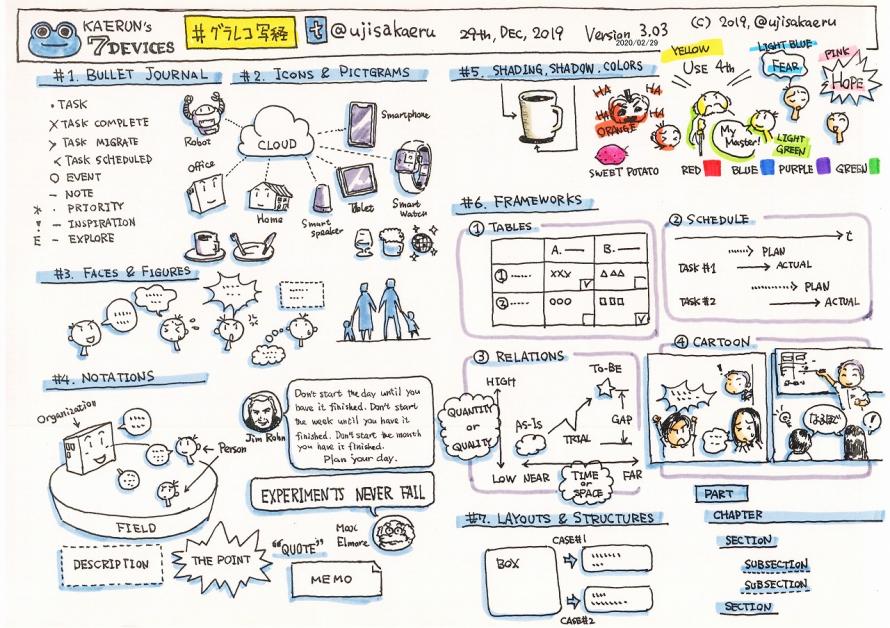 KAERUN's
7 DEVICES
#グラレコ写経
t @ujisakaeru
29th, DEC, 2019
Version 3.03
2020/02/29
(C) 2019, @ujisakaeru
#1. BULLET JOURNAL
• TASK
X TASK COMPLETE
> TASK MIGRATE
< TASK SCHEDULED
O EVENT
- NOTE
* • PRIORITY
! - INSPIRATION
E - EXPLORE
#2. ICONS & PICTGRAMS
Robot
CLOUD
Smartphone
Office
Home
Smart speaker
Tablet
Smart Watch
#3. FACES & FIGURES
#4. NOTATIONS
Organization
Person
FIELD
Jim Rohn
Don't start the day until you
have it finished. Don't start
the week until you have it
finished. Don't start the month
you have it finished.
Plan your day.
EXPERIMENTS NEVER FAIL
"QUOTE"
Max
Elmore
DESCRIPTION
THE POINT
MEMO
#5. SHADING, SHADOW. COLORS
HA HA
HA HA
ORANGE
SWEET POTATO
YELLOW
USE 4th
My
Master!
LIGHT
GREEN
LIGHT BLUE
FEAR
PINK
HOPE
RED BLUE PURPLE GREEN
#6. FRAMEWORKS
① TABLES
A. — B. —
① ...... XXX △△△
② ...... OOO □□□
② SCHEDULE
t
PLAN
TASK #1 ACTUAL
PLAN
TASK #2 ACTUAL
③ RELATIONS
HIGH
QUANTITY
or
QUALITY
LOW NEAR
TIME
or
SPACE
FAR
AS-IS
TRIAL
TO-BE
GAP
④ CARTOON
!
なるほど
#7. LAYOUTS & STRUCTURES
BOX
CASE#1
CASE#2
PART
CHAPTER
SECTION
SUBSECTION
SUBSECTION
SECTION